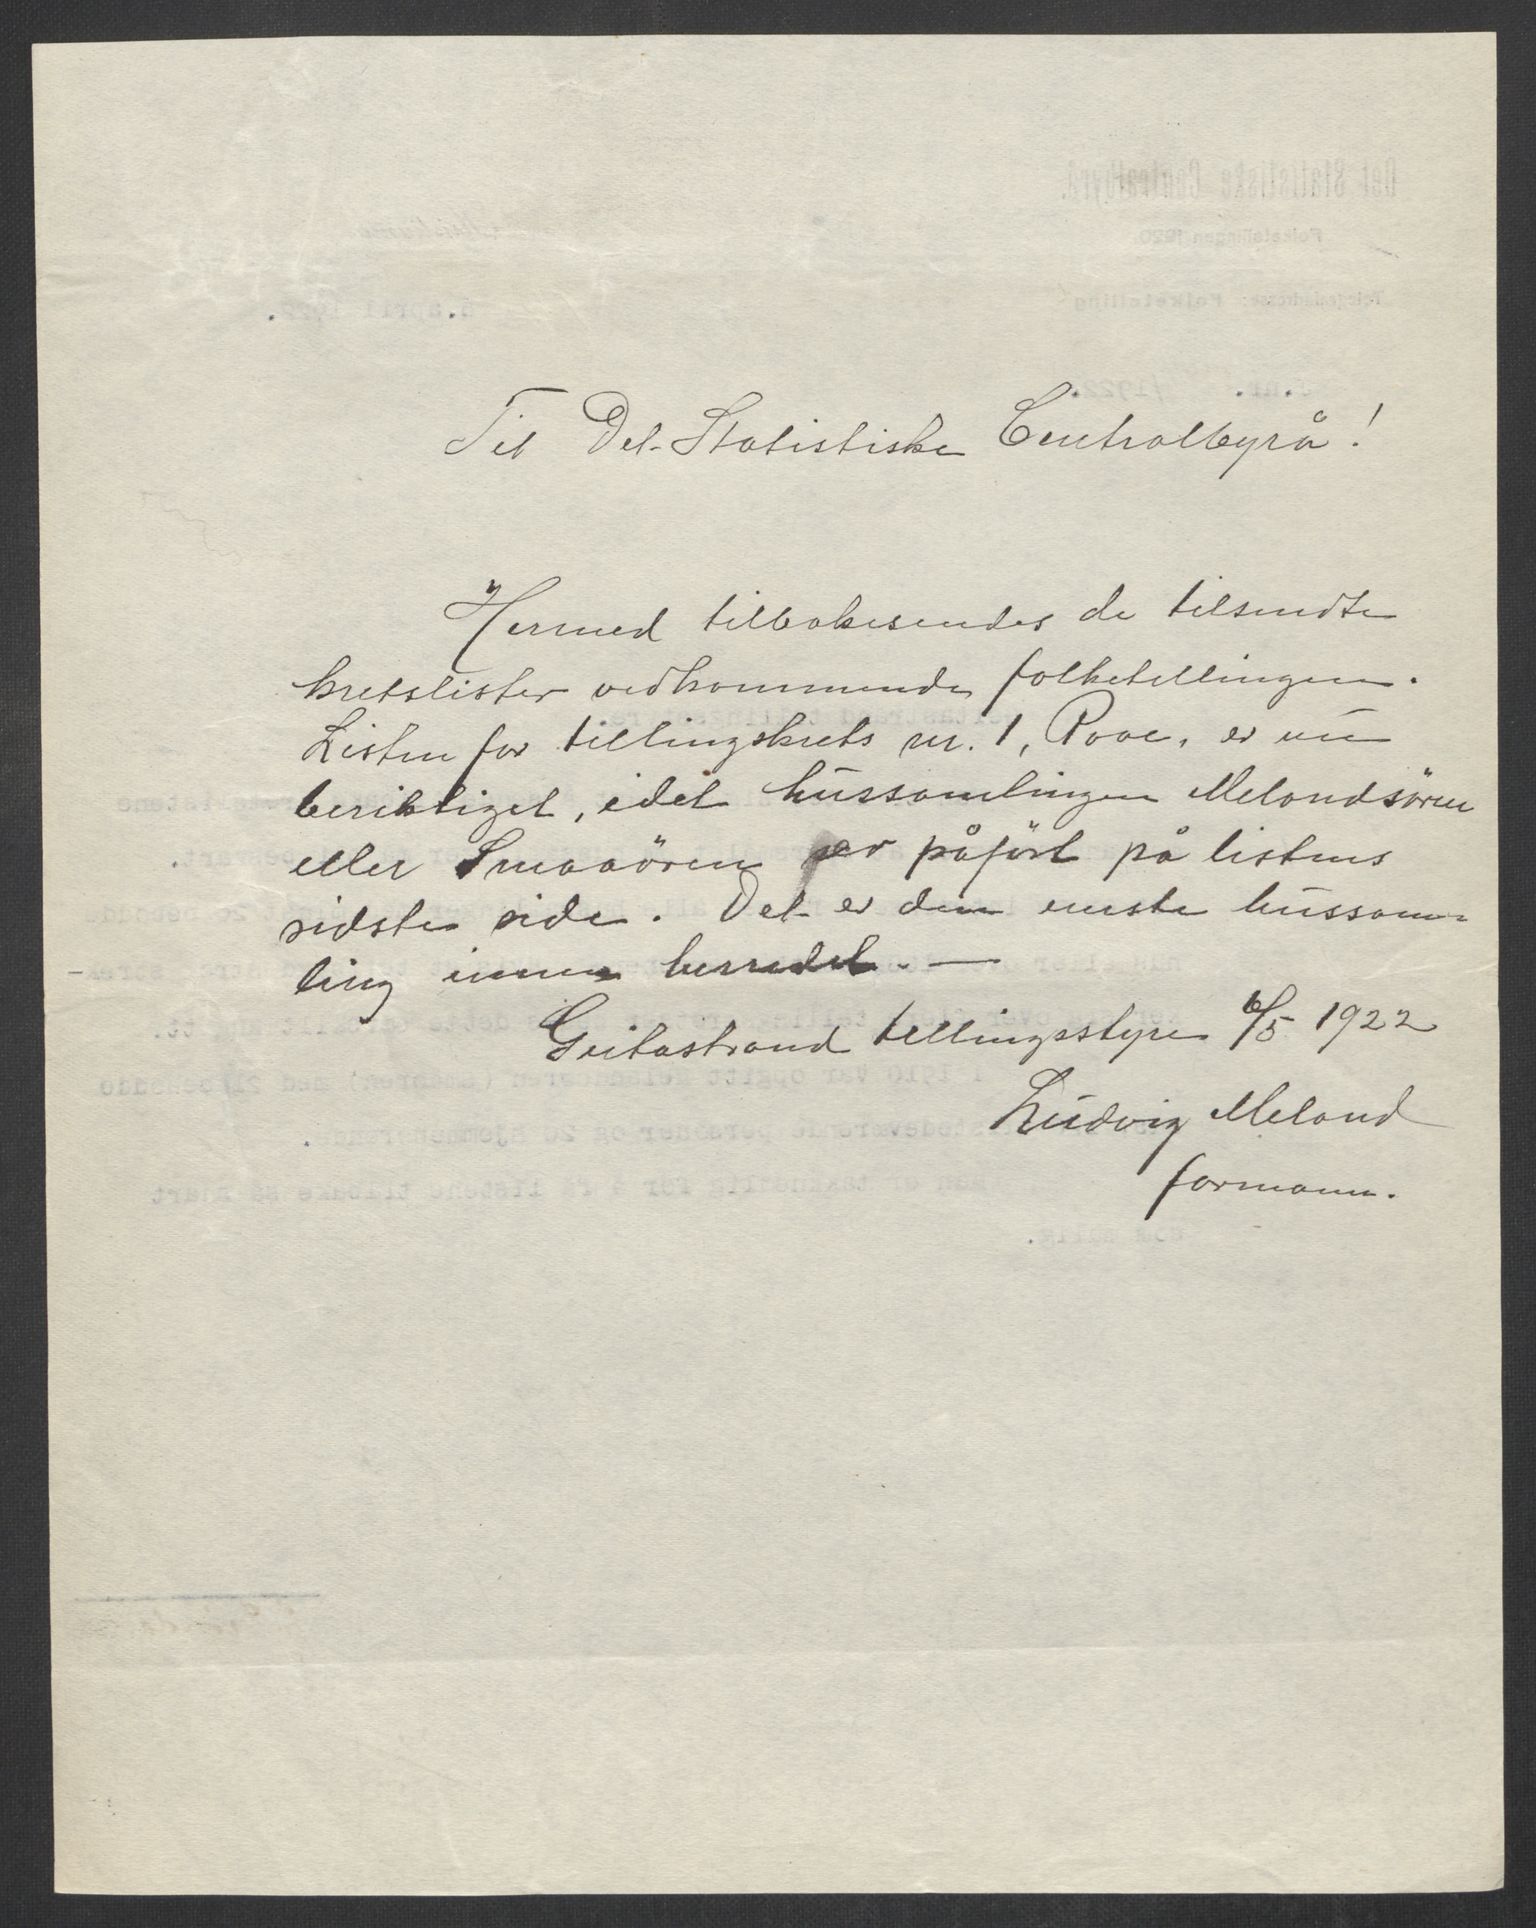 Til Det Statistiske Centralbyrå!
Hermed tilbakesendes de tilsendte
kretslister vedkommende folketellingen.
Listen for tellingskrets nr. 1, Rove, er nu
beriktiget, idet hussamlingen Melandsören
eller Smaaören er påført på listens
sidste side. Det er den eneste hussam=
ling innen herredet. —
Geitastrand tellingsstyre 6/5 1922
Ludvig Meland
formann.